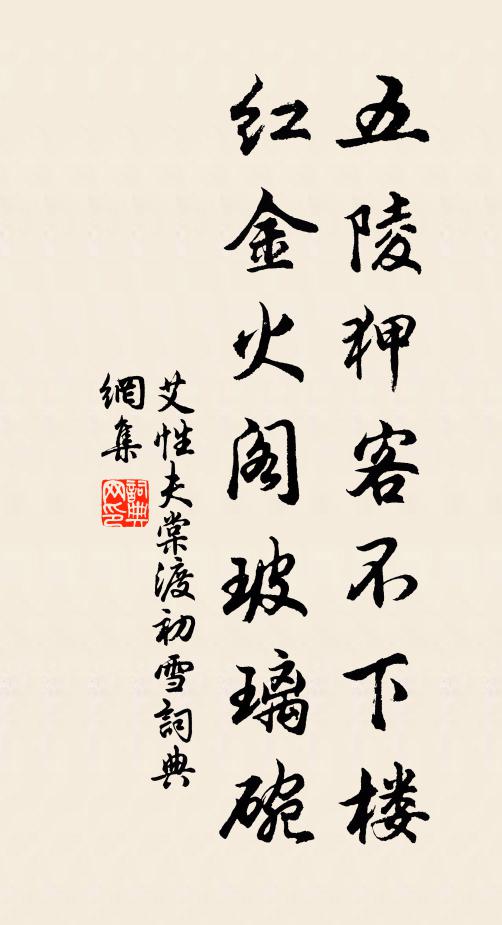 五陵狎客不下楼
红金火阁玻璃碗
艾性夫棠渡初雪詞典
網集
詞典
网印